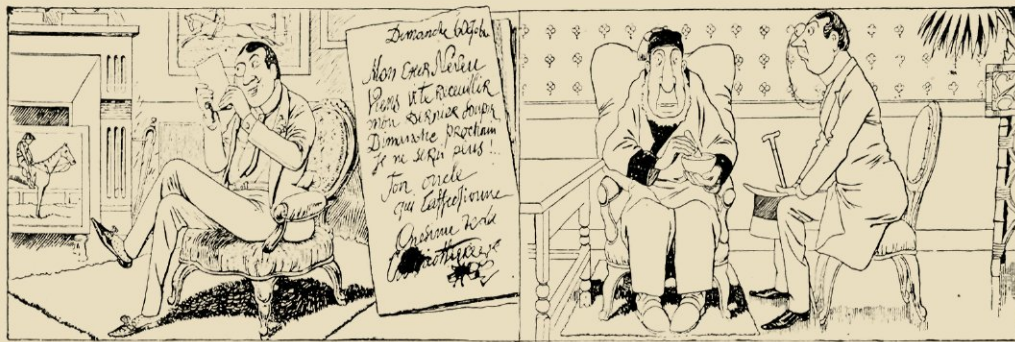 Dimanche 6 Octobre
Mon cher Neveu
Viens vite recueillir
mon dernier soupir
Dimanche prochain
je ne serai plus !..
Ton oncle
qui t'affectionne
Onésime